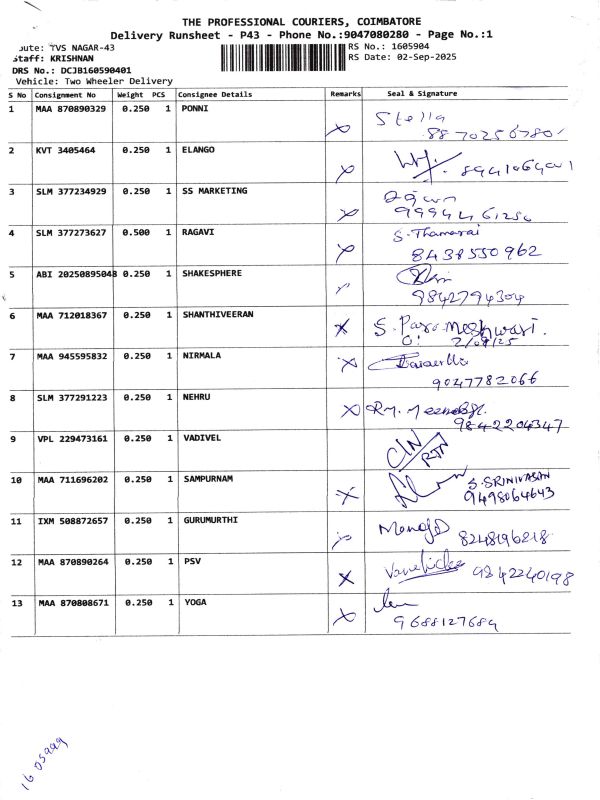 THE PROFESSIONAL COURIERS, COIMBATORE
Delivery Runsheet - P43 - Phone No.:9047080280 - Page No.:1
oute: TVS NAGAR-43 RS No.: 1605904
Staff: KRISHNAN RS Date: 02-Sep-2025
DRS No.: DCJB160590401
Vehicle: Two Wheeler Delivery
S No Consignment No Weight PCS Consignee Details Remarks Seal & Signature
1 MAA 870890329 0.250 1 PONNI Stella
2 KVT 3405464 0.250 1 ELANGO
3 SLM 377234929 0.250 1 SS MARKETING
4 SLM 377273627 0.500 1 RAGAVI S. Thamarai
8438550962
5 ABI 20250895048 0.250 1 SHAKESPHERE
9842794304
6 MAA 712018367 0.250 1 SHANTHIVEERAN S. Parameshwari.
2/09/25
7 MAA 945595832 0.250 1 NIRMALA
9047782066
8 SLM 377291223 0.250 1 NEHRU
9842204347
9 VPL 229473161 0.250 1 VADIVEL CIN
RTN
10 MAA 711696202 0.250 1 SAMPURNAM S. SRINIVASAN
9498064643
11 IXM 508872657 0.250 1 GURUMURTHI
8248196218
12 MAA 870890264 0.250 1 PSV 9842240198
13 MAA 870808671 0.250 1 YOGA
9688127684